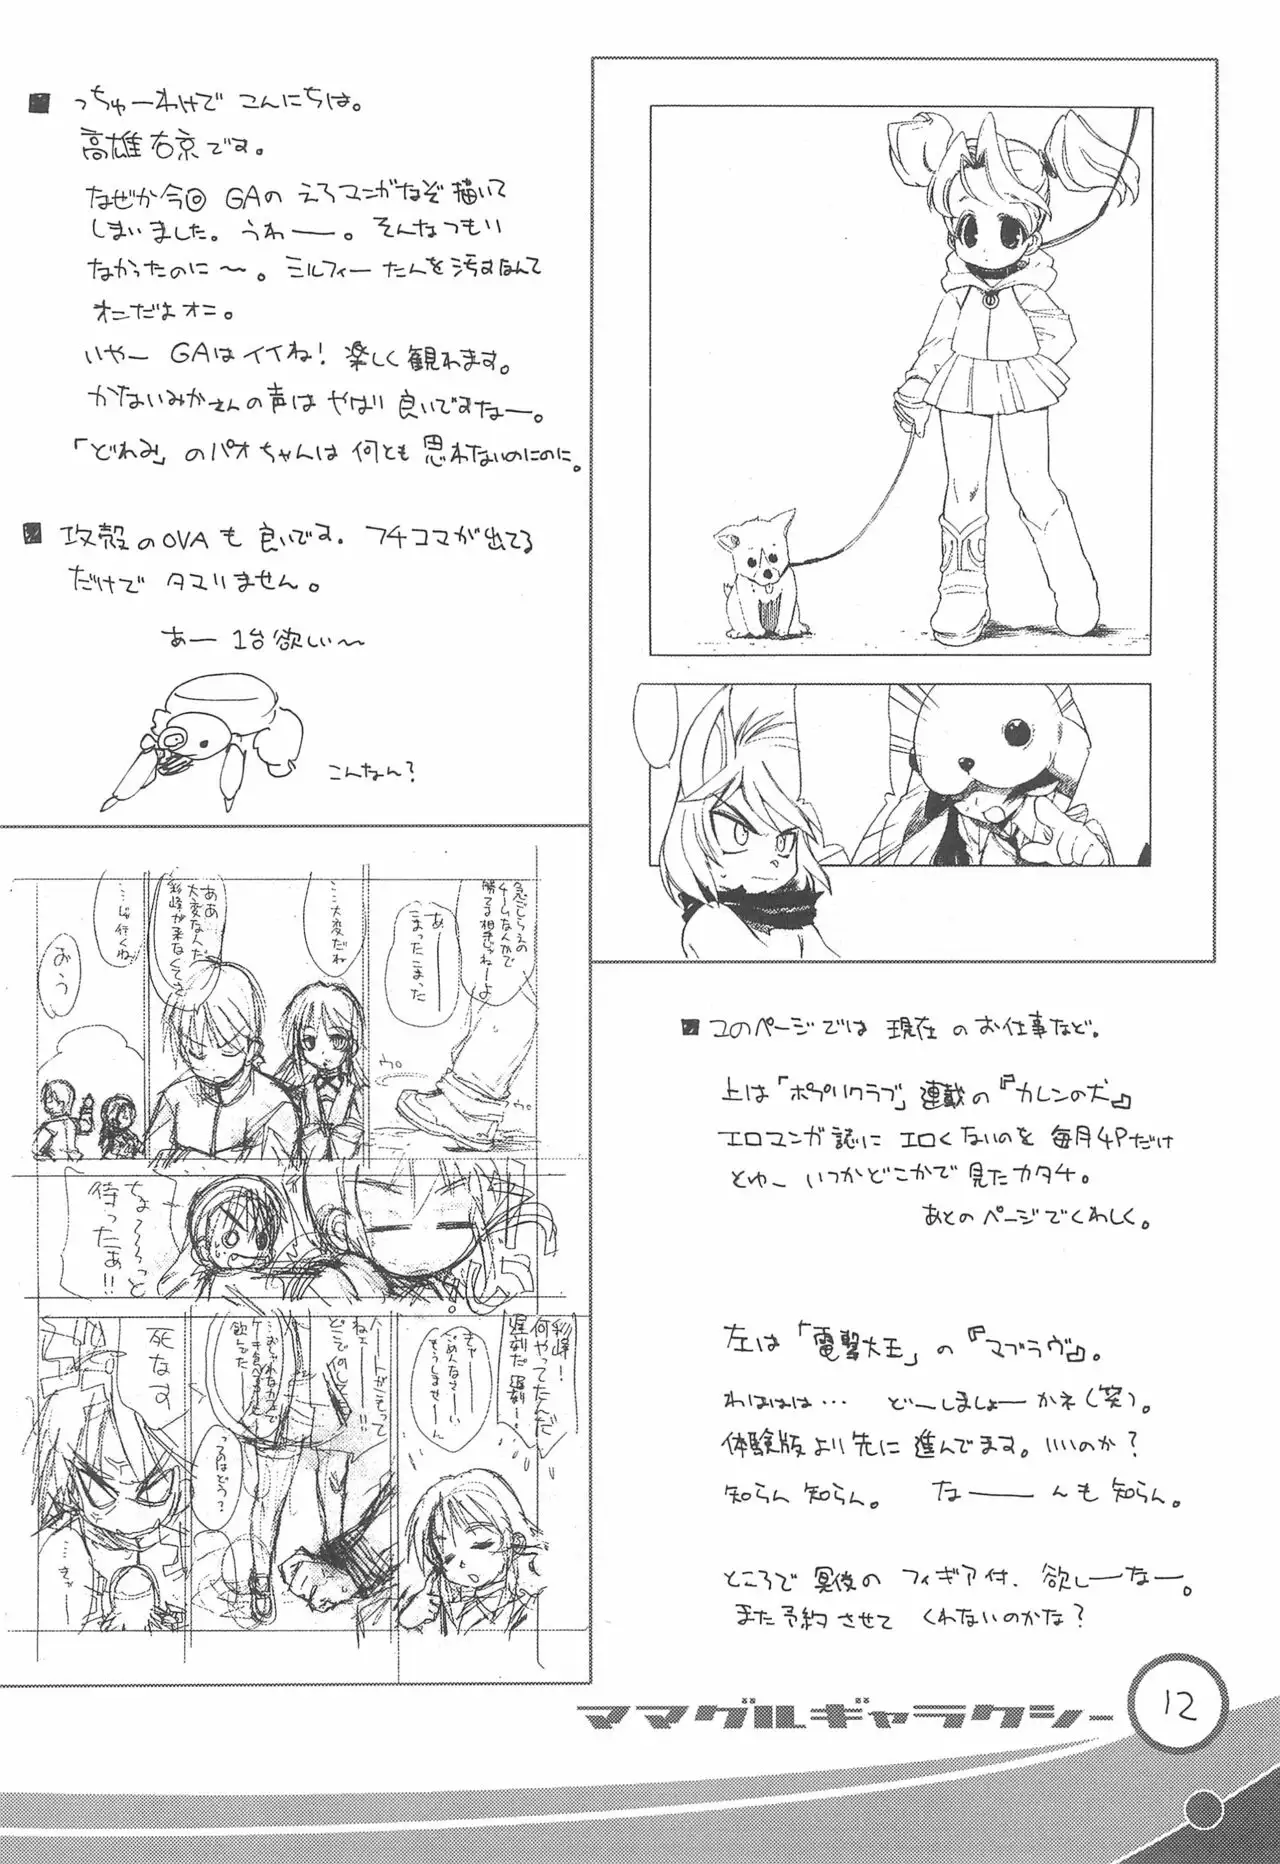 ■ っちゅーわけで こんにちは。
高雄右京です。
なぜか今回 GAの えろマンガなぞ 描いて
しまいました。うわー。そんなつもり
なかったのに〜。ミルフィーたんを汚すなんて
オニだよオニ。
いやー GAはイイね! 楽しく観れます。
かないみかさんの声は やはり 良いですなー。
「どれみ」のパオちゃんは 何とも 思わないのにのに。
■ 攻殻のOVAも 良いです。フチコマが出てる
だけで タマりません。
あー 1台欲しい〜
こんなん?
急ごしらえの
チームなんかで
勝てる相手じゃねーよ
あー
まったこまった
……大変だね
ああ…
大変なんだ
彩峰が来なくてさ
……じゃ行くね
おう
ウロ
ウロ
ちょ〜〜っと
待ったぁ!!
彩峰!
何やってたんだ
遅刻だ 遅刻ー!
きゃー
ごめんなさーい
もうしませーん
どこでのしてきた
飲んでたー
ってるはどう?
死なす
■ このページでは 現在 のお仕事など。
上は「ポプリクラブ」連載の『カレンの犬』
エロマンガ誌に エロくないのを 毎月4Pだけ
とゆー いつかどこかで 見たカタチ。
あとのページでくわしく。
左は「電撃大王」の『マブラヴ』。
わははは… どーしましょーかネ(笑)。
体験版より先に 進んでます。いいのか?
知らん 知らん。 なーんも 知らん。
ところで 冥夜の フィギア付、欲しーなー。
また予約させて くれないのかな?
ママグルギャラクシー
12